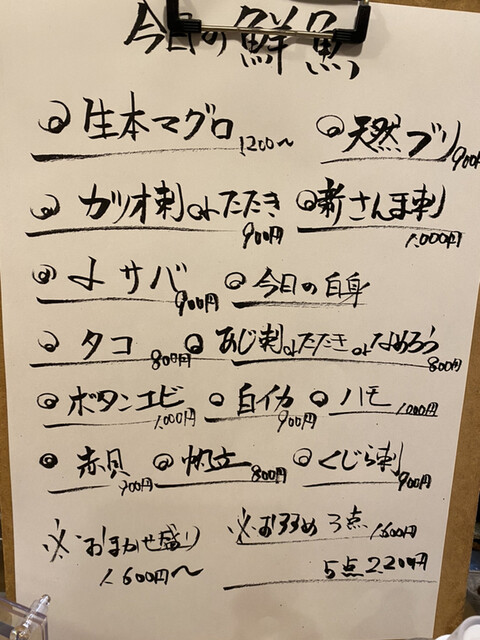 今日の鮮魚
◎生本マグロ 1200〜 ◎天然ブリ 900円
◎カツオ刺orたたき 900円 ◎新さんま刺 1,000円
◎〆サバ 900円 ◎今日の白身
◎タコ 800円 ◎あじ刺orたたきorなめろう 800円
◎ボタンエビ 1,000円 ◎白イカ 900円 ◎ハモ 1,000円
◎赤貝 900円 ◎帆立 800円 ◎くじら刺 900円
※おまかせ盛り 1,600円〜 ※お奨め 3点 1,600円
5点 2,200円